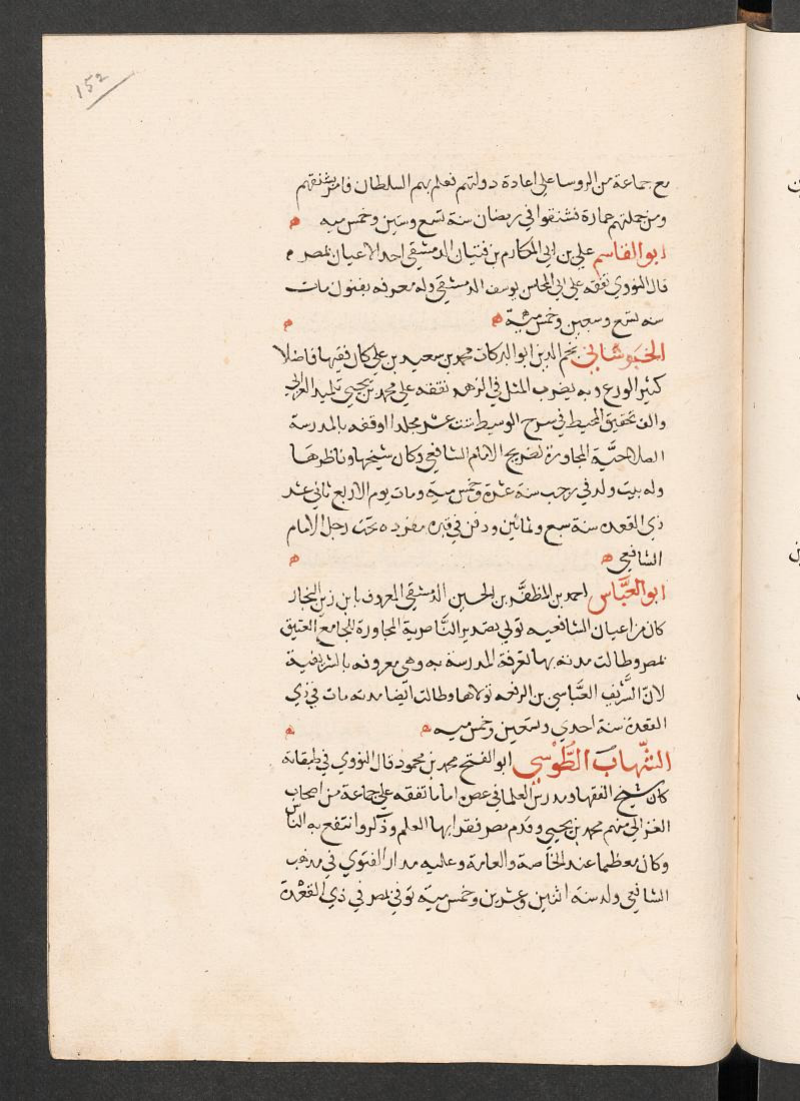 152
مع جماعة من الروسا على اعادة دولتهم فعلم بهم السلطان فامر بشنقهم
ومن جملتهم عمارة فشنقوا في رمضان سنة تسع وستين وخمس ميه
ابو القاسم علي بن ابي المكارم بن فتيان الدمشقي احد الاعيان بمصر
قال النووي تفقه على ابي المحاسن يوسف الدمشقي وله معرفه بفنون مات
سنه تسع وسبعين وخمس مية
الخبوشاني نجم الدين ابو البركات محمد بن سعيد بن علي كان فقيها فاضلا
كثير الورع وبه يضرب المثل في الزهد تفقه على محمد بن يحيى تلميذ الغزالي
والف تحقيق المحيط في شرح الوسيط ستت عشر مجلدا اوقفه بالمدرسة
الصلاحيَّة المجاورة لضريح الامام الشافعي وكان شيخها وناظرها
وله بيت ولد في رجب سنة عشرة وخمس مية ومات يوم الاربع ثاني عشر
ذي القعدة سنة سبع وثمانين ودفن في قبة مفرده تحت رجل الامام
الشافعي
ابو العبَّاس احمد بن المظفَّر بن الحسين الدمشقي المعروف بابن زين التجار
كان من اعيان الشافعيه تولي تصدير النَّاصرية المجاورة للجامع العتيق
بمصر وطالت مدته بها لعرفة المدرسة به وهي معروفه بالشريفية
لانّ الشَّريف العبَّاسي بن الرفعه تولاها وطالت ايضا مدته مات في ذي
القعدة سنة احدي وتسعين وخمس ميه
الشّهاب الطُّوسي ابو الفتح محمد بن محمود قال النووي في طبقاته
كان شيخ الفقها ومدرس العلما في عصره اماما تفقه على جماعة من اصحاب
الغزالي منهم محمد بن يحيى وقدم مصر فقرا بها العلم وذكروا انتفع به النَّاس
وكان معظما عند الخاصة والعامة وعليه مدار الفتوي في مذهب
الشافعي ولد سنه اثنين وعشرين وخمس ميَّه توفي بمصر في ذي القعْدة